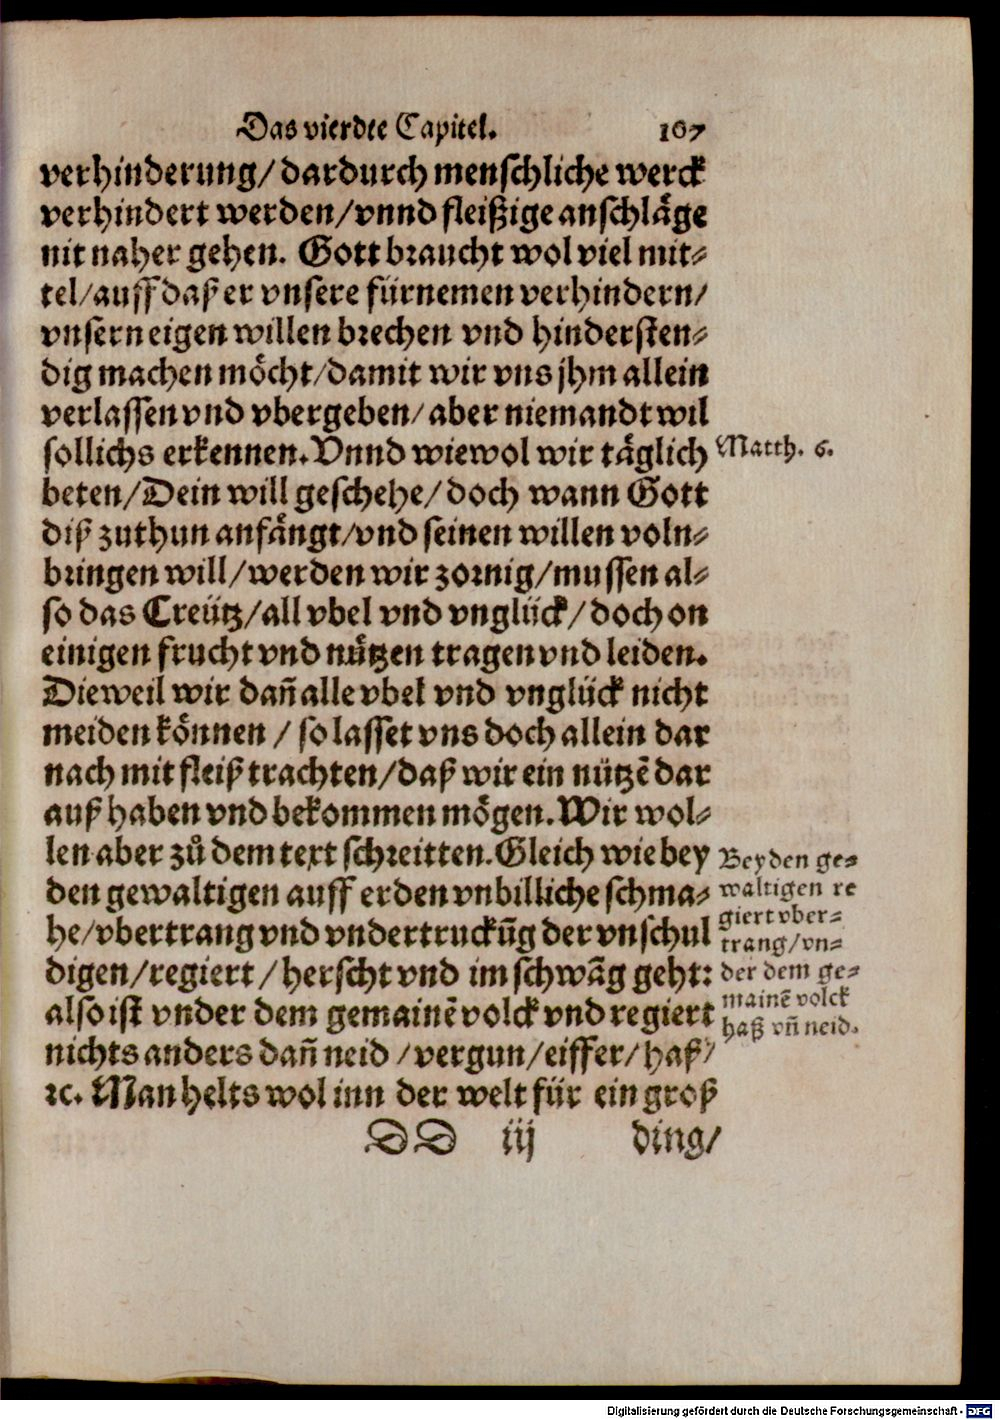 Das vierdte Capitel. 167
verhinderung/dardurch menschliche werck
verhindert werden/vnnd fleißige anschläge
nit naher gehen. Gott braucht wol viel mit⸗
tel/auff daß er vnsere fürnemen verhindern/
vnsern eigen willen brechen vnd hindersten⸗
dig machen möcht/damit wir vns jhm allein
verlassen vnd vbergeben/aber niemandt wil
sollichs erkennen. Vnnd wiewol wir täglich
Matth. 6.
beten/Dein will geschehe/doch wann Gott
diß zuthun anfängt/vnd seinen willen voln⸗
bringen will/werden wir zornig/mussen al⸗
so das Creütz/all vbel vnd vnglück/doch on
einigen frucht vnd nützen tragen vnd leiden.
Dieweil wir dañ alle vbel vnd vnglück nicht
meiden können/so lasset vns doch allein dar
nach mit fleiß trachten/daß wir ein nützē dar
auß haben vnd bekommen mögen. Wir wol⸗
len aber zů dem text schreitten. Gleich wie bey
den gewaltigen auff erden vnbilliche schma⸗
he/vbertrang vnd vndertruckūg der vnschul
digen/regiert/herscht vnd im schwāg geht:
also ist vnder dem gemainē volck vnd regiert
nichts anders dañ neid/vergun/eiffer/haß/
ꝛc. Man helts wol inn der welt für ein groß
Bey den ge⸗
waltigen re
giert vber⸗
trang/vn⸗
der dem ge⸗
mainē volck
haß vñ neid.
DD iij ding/
Digitalisierung gefördert durch die Deutsche Forschungsgemeinschaft - DFG